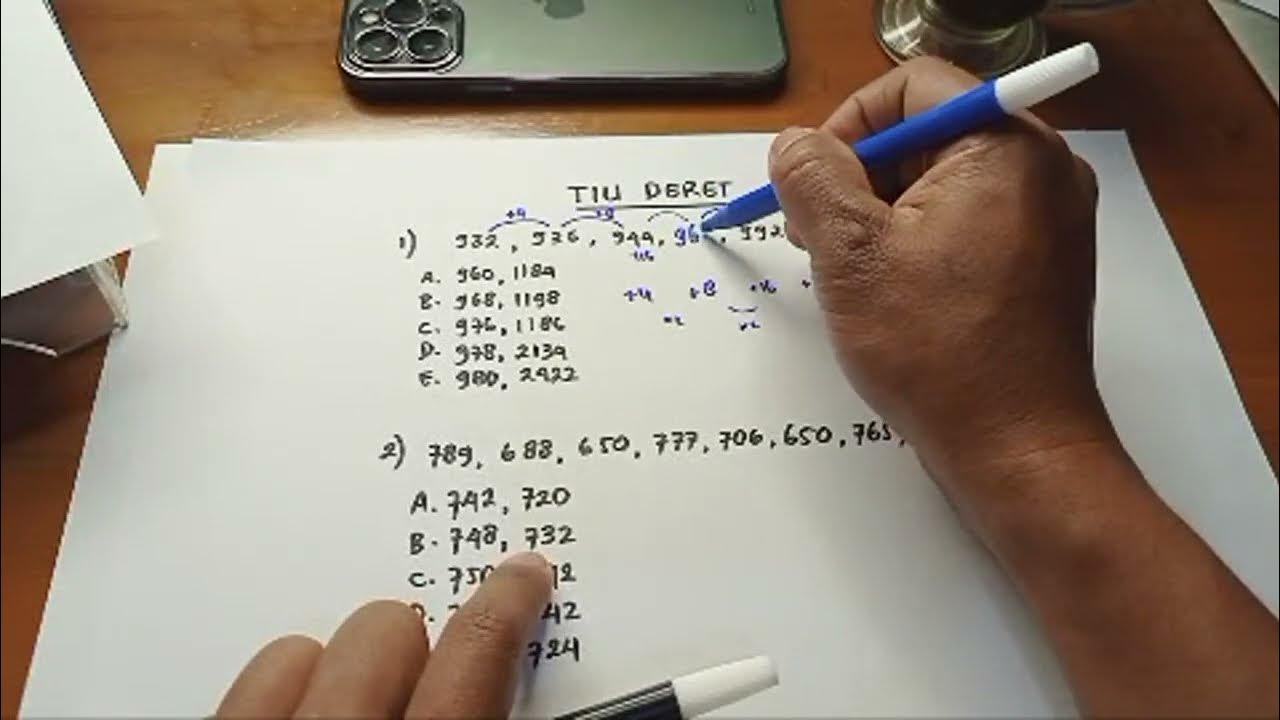 TIU DERET
+4 +8
1) 932, 936, 944, 96, 992
+16
A. 960, 1184
+4 +8 +16
B. 968, 1198
×2 ×2
C. 976, 1186
D. 978, 2134
E. 980, 2422
2) 789, 688, 650, 777, 706, 650, 765,
A. 742, 720
B. 748, 732
C. 750
42
724